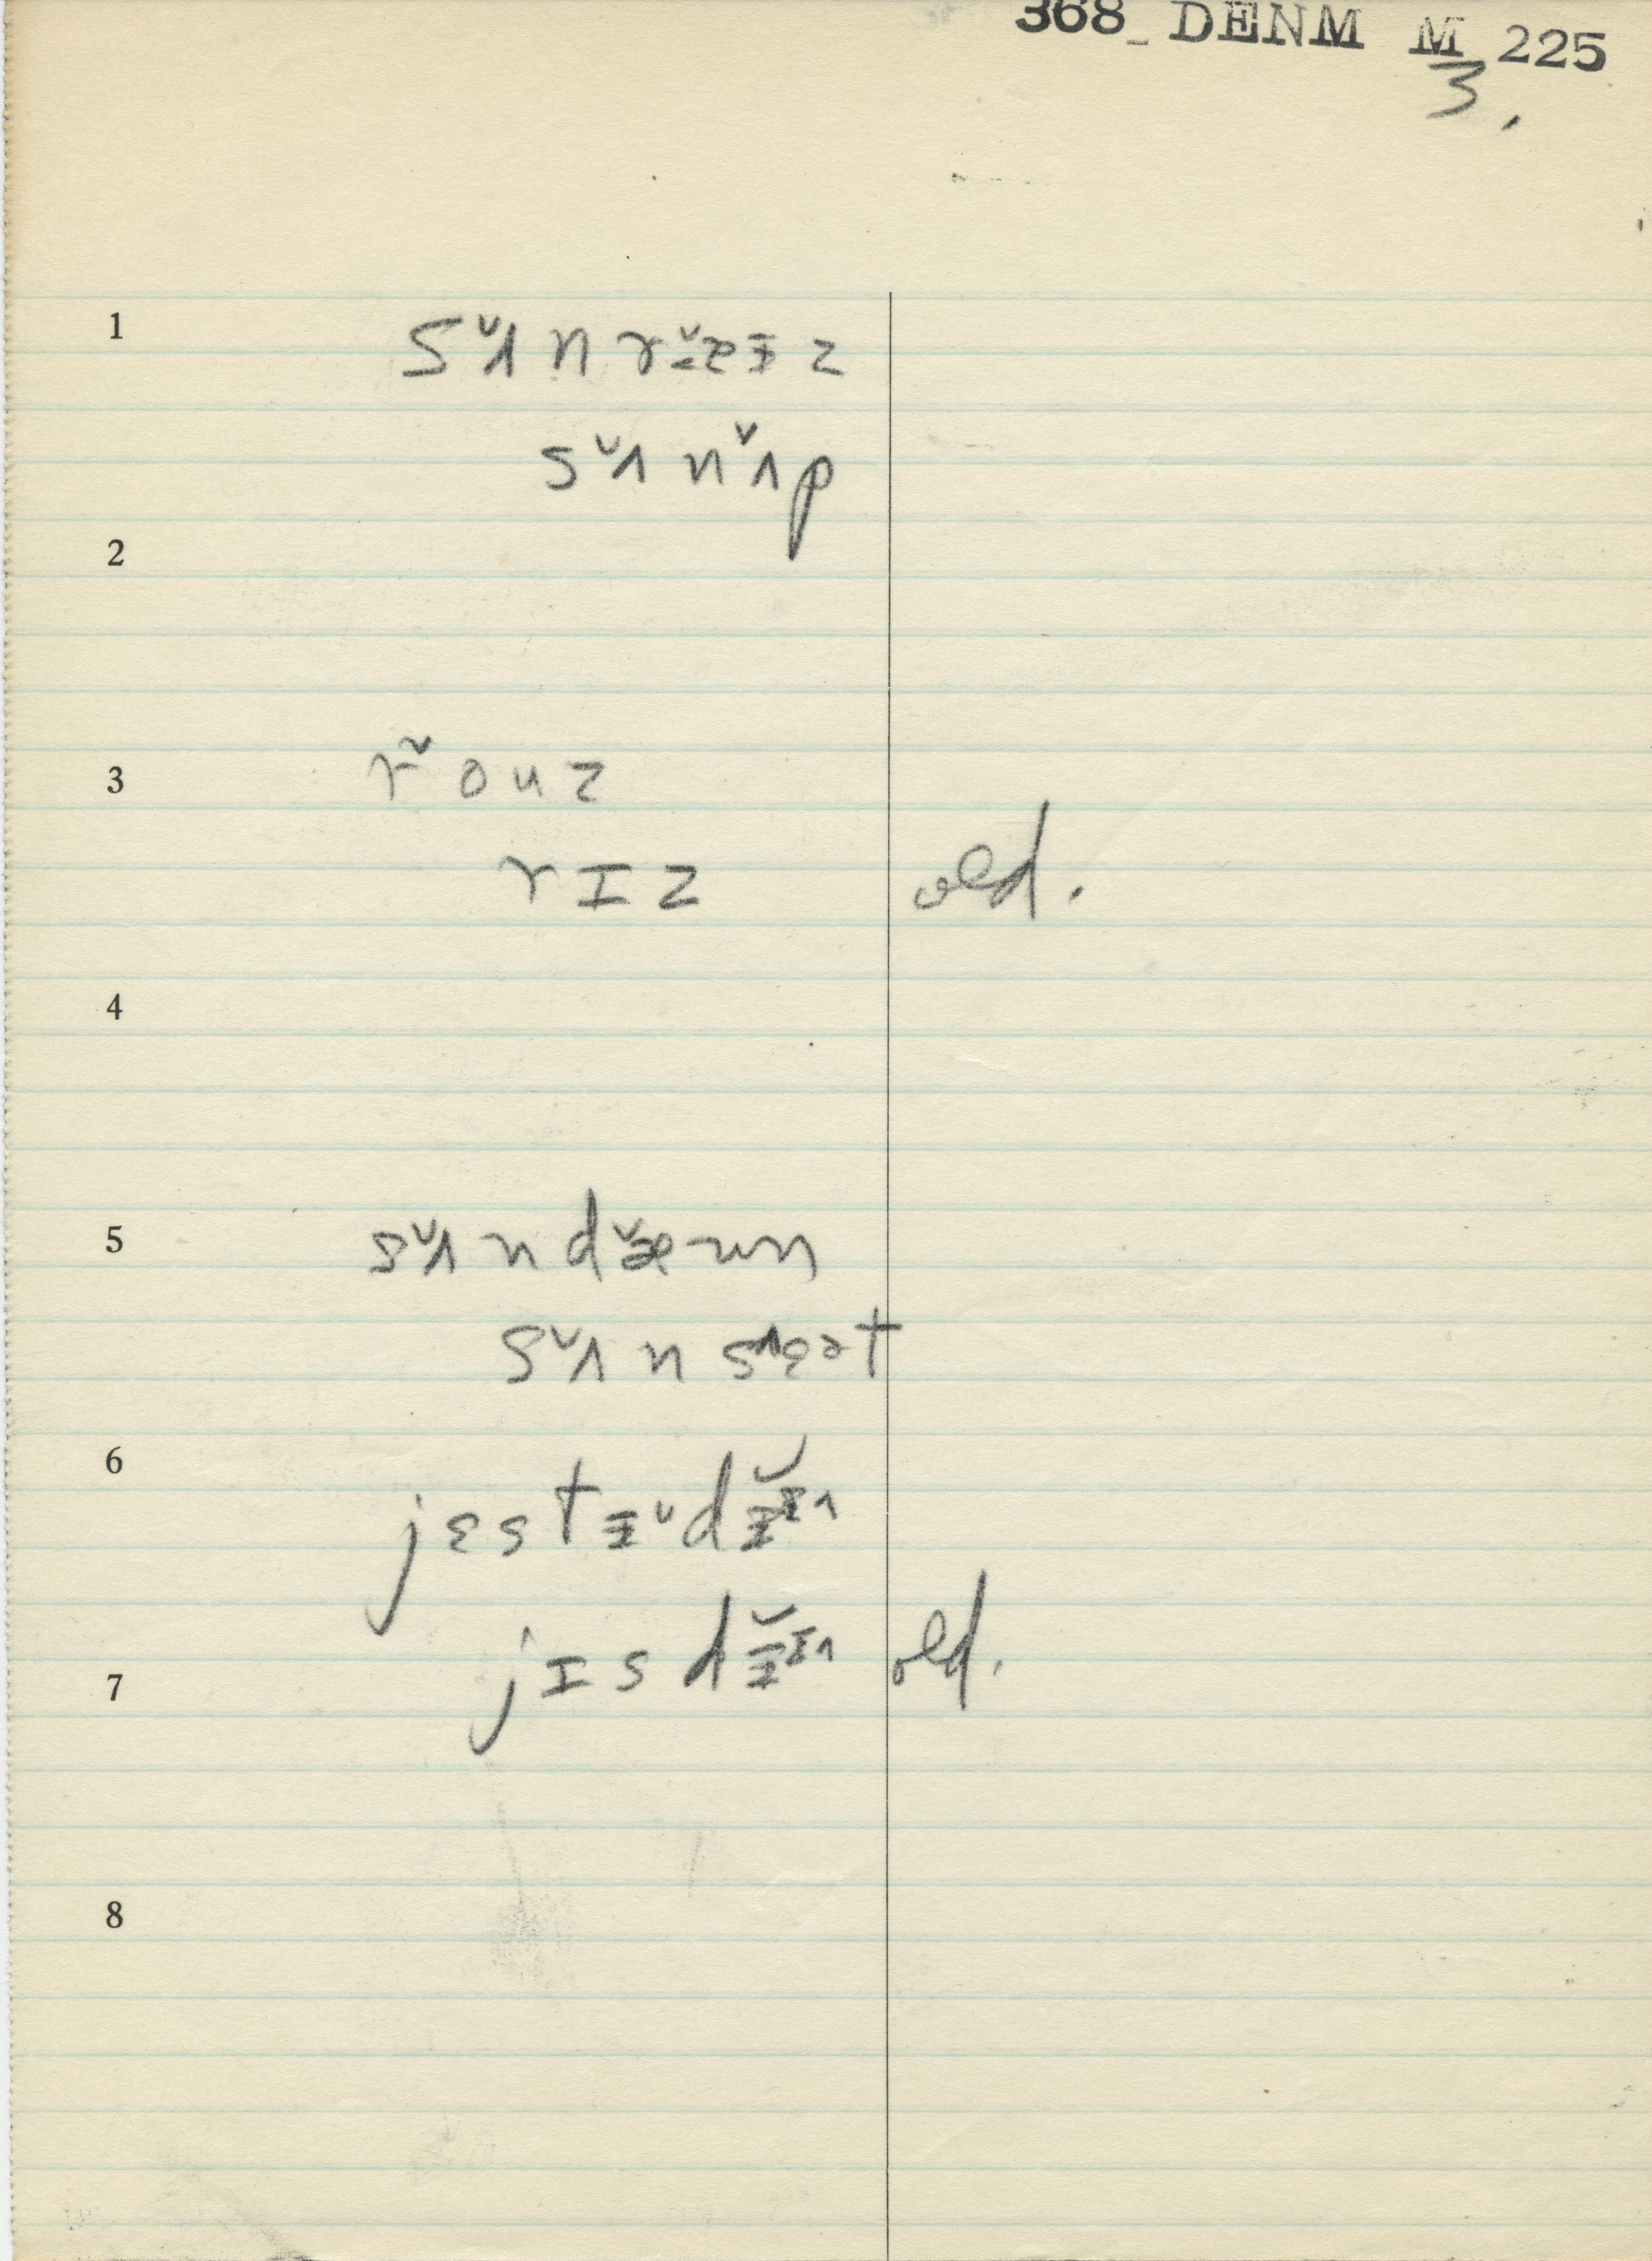 368_ DENM M 225
3.
1 s˅ʌn r˅æɪz
s˅ʌn˅ʌp
2
3 r˅ouz
rɪz old.
4
5 s˅ʌn d˅æun
s˅ʌn s^ɛət
6 jɛstɪ˅d
7 jɪsd old.
8